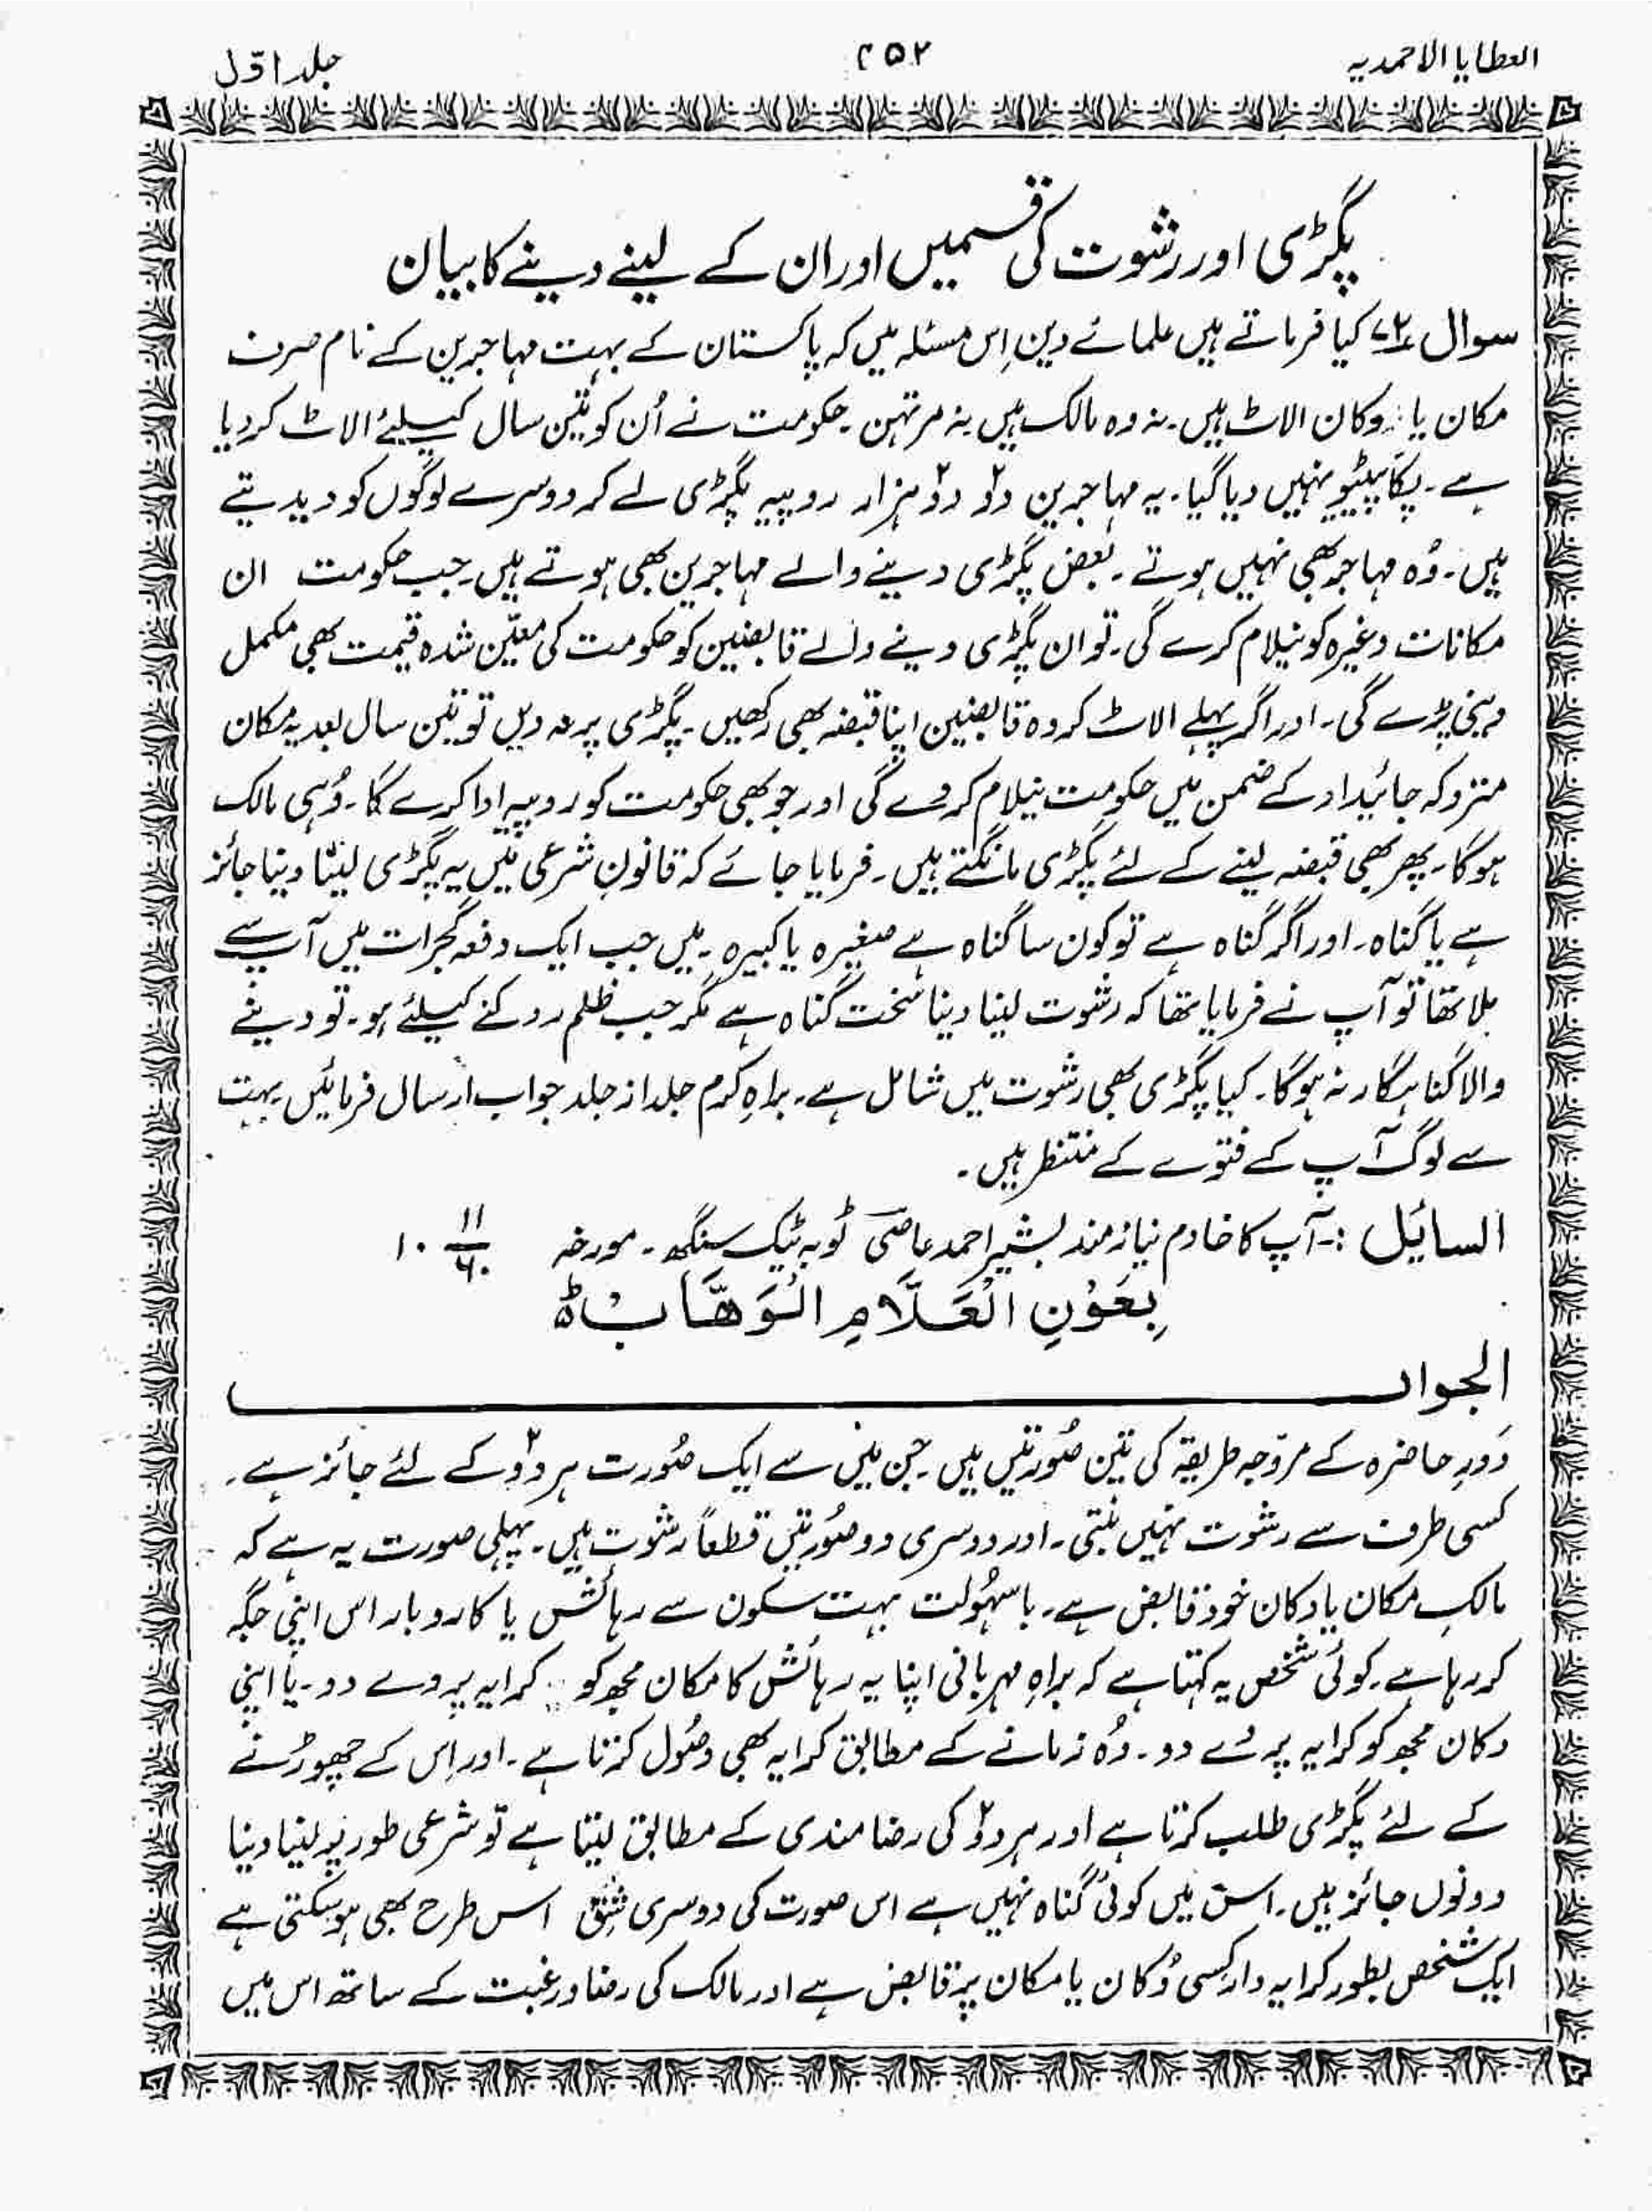 العطایا الاحمدیہ
۲۵۲
جلد اوّل
پگڑی اور رشوت کی قسمیں اور ان کے لینے دینے کا بیان
سوال کیا فرماتے ہیں علمائے دین اِس مسئلہ میں کہ پاکستان کے بہت مہاجرین کے نام صرف
مکان یا دوکان الاٹ ہیں۔ نہ وہ مالک ہیں نہ مرتہن۔ حکومت نے اُن کو تین سال کیلئے الاٹ کر دیا
ہے۔ پکا پیٹو نہیں دیا گیا۔ یہ مہاجرین دو دو ہزار روپیہ پگڑی لے کر دوسرے لوگوں کو دیدیتے
ہیں۔ وُہ مہاجر بھی نہیں ہوتے۔ بعض پگڑی دینے والے مہاجرین بھی ہوتے ہیں۔ جب حکومت ان
مکانات وغیرہ کو نیلام کرے گی۔ تو ان پگڑی دینے والے قابضین کو حکومت کی معیّن شدہ قیمت بھی مکمل
دینی پڑے گی۔ اور اگر پہلے الاٹ کردہ قابضین اپنا قبضہ بھی رکھیں۔ پگڑی پر نہ دیں تو تین سال بعد یہ مکان
متروکہ جائیداد کے ضمن میں حکومت نیلام کر دے گی اور جو بھی حکومت کو روپیہ ادا کرے گا۔ وُہی مالک
ہوگا۔ پھر بھی قبضہ لینے کے لئے پگڑی مانگتے ہیں۔ فرمایا جائے کہ قانونِ شرعی میں یہ پگڑی لینا دینا جائز
ہے یا گناہ۔ اور اگر گناہ ہے تو کون سا گناہ ہے صغیرہ یا کبیرہ۔ میں جب ایک دفعہ گجرات میں آپ سے
ملا تھا تو آپ نے فرمایا تھا کہ رشوت لینا دینا سخت گناہ ہے مگر جب ظلم روکنے کیلئے ہو۔ تو دینے
والا گناہگار نہ ہوگا۔ کیا پگڑی بھی رشوت میں شامل ہے۔ براہِ کرم جلد از جلد جواب ارسال فرمائیں۔ بہت
سے لوگ آپ کے فتوے کے منتظر ہیں۔
السائل :۔ آپ کا خادم نیازمند بشیر احمد عاصی ٹوبہ ٹیک سنگھ۔ مورخہ ۱۱/۶۰ ۱۰
بِعَوْنِ الْعَلَّامِ الْوَهَّابْ ط
الجواب
دَورِ حاضرہ کے مروّجہ طریقہ کی تین صُورتیں ہیں۔ جن میں سے ایک صُورت ہر دو کے لئے جائز ہے۔
کسی طرف سے رشوت نہیں بنتی۔ اور دوسری دو صُورتیں قطعاً رشوت ہیں۔ پہلی صورت یہ ہے کہ
مالکِ مکان یا دکان خود قابض ہے۔ باسہُولت بہت سکون سے رہائش یا کاروبار اس اپنی جگہ
کر رہا ہے۔ کوئی شخص یہ کہتا ہے کہ براہِ مہربانی اپنا یہ رہائش کا مکان مجھ کو کرایہ پر دے دو۔ یا اپنی
دکان مجھ کو کرایہ پر دے دو۔ وُہ زمانے کے مطابق کرایہ بھی وصُول کرتا ہے۔ اور اِس کے چھوڑنے
کے لئے پگڑی طلب کرتا ہے اور ہر دو کی رضامندی کے مطابق لیتا ہے تو شرعی طور پر لینا دینا
دونوں جائز ہیں۔ اس میں کوئی گناہ نہیں ہے اس صورت کی دوسری شق اس طرح بھی ہو سکتی ہے
ایک شخص بطور کرایہ دار کسی دُکان یا مکان پر قابض ہے اور مالک کی رضا ورغبت کے ساتھ اس میں